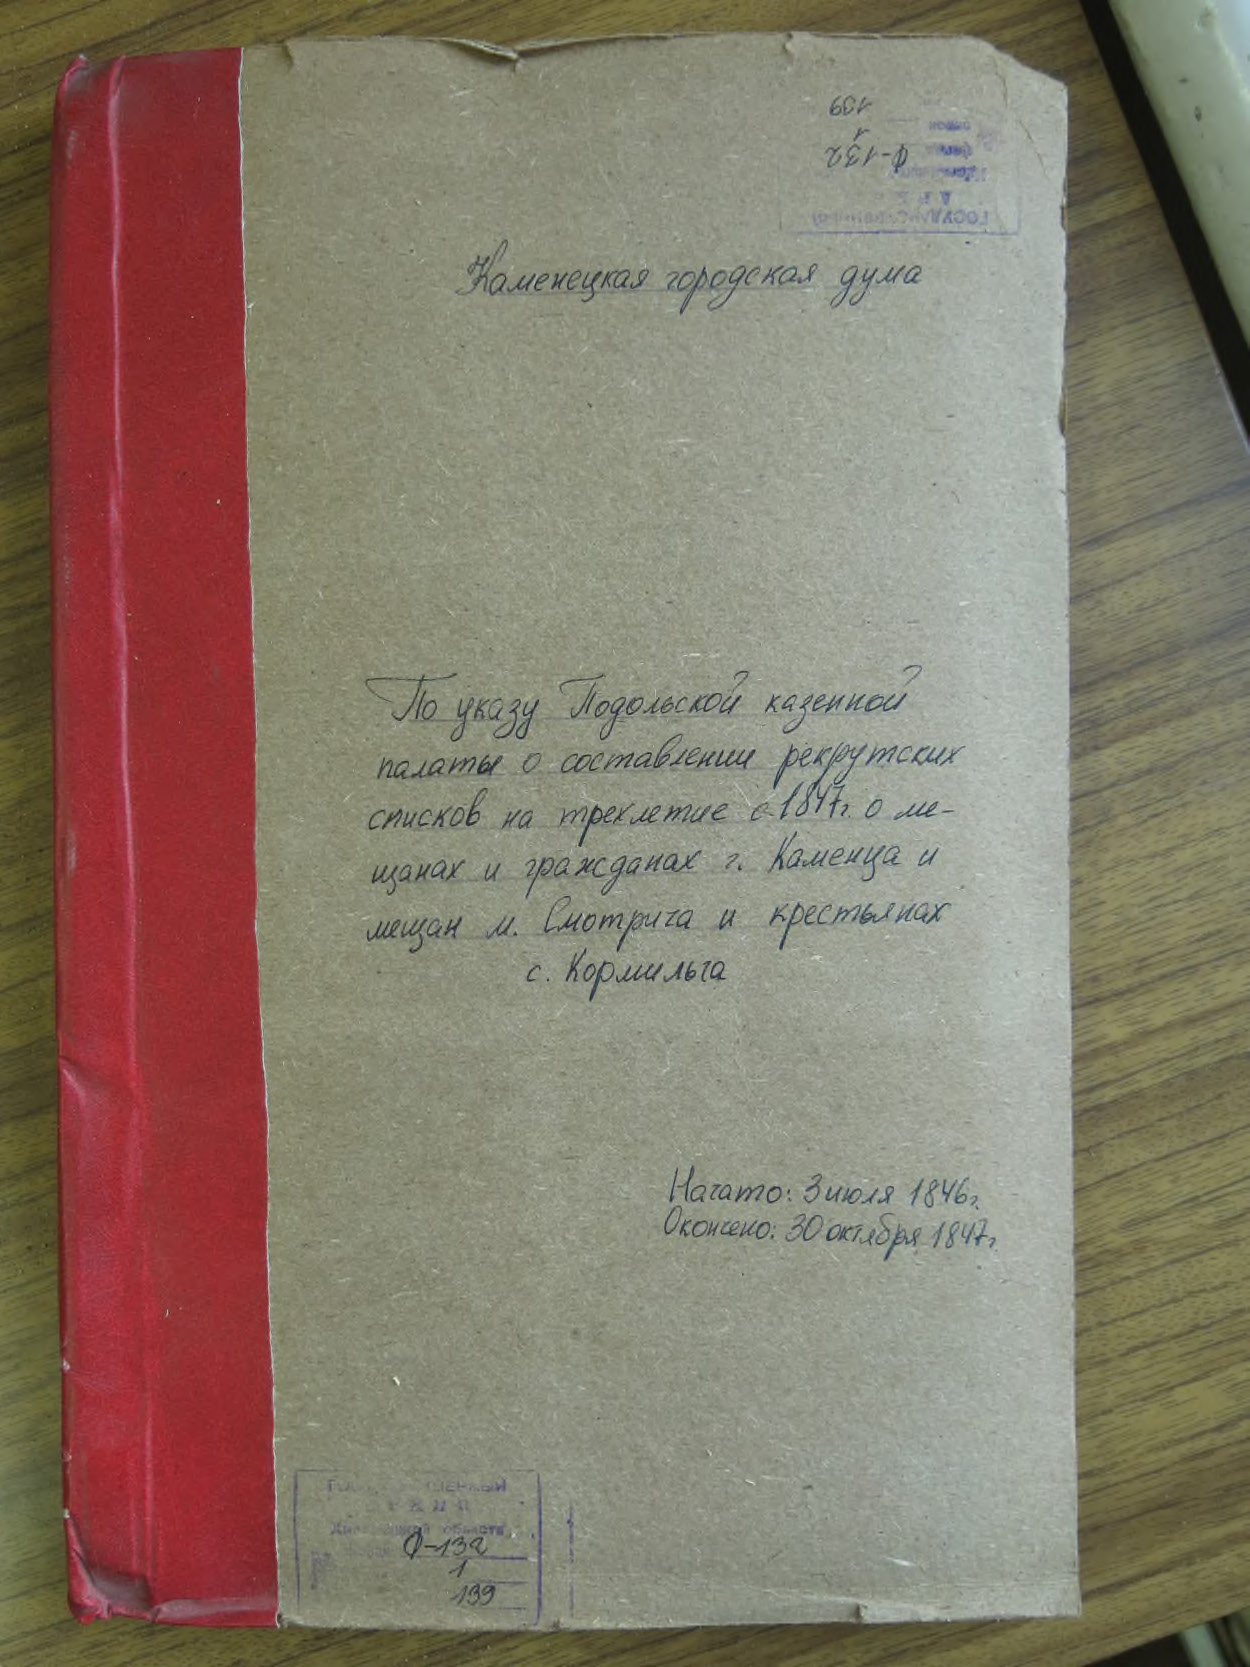 Ф-132
1
139
Каменецкая городская дума
По указу Подольской казенной
палаты о составлении рекрутских
списков на трехлетие с 1847г. о ме-
щанах и гражданах г. Каменца и
мещан м. Смотрича и крестьянах
с. Кормильча
Начато: 3 июля 1846г.
Окончено: 30 октября 1847г.
области
Ф-132
1
139